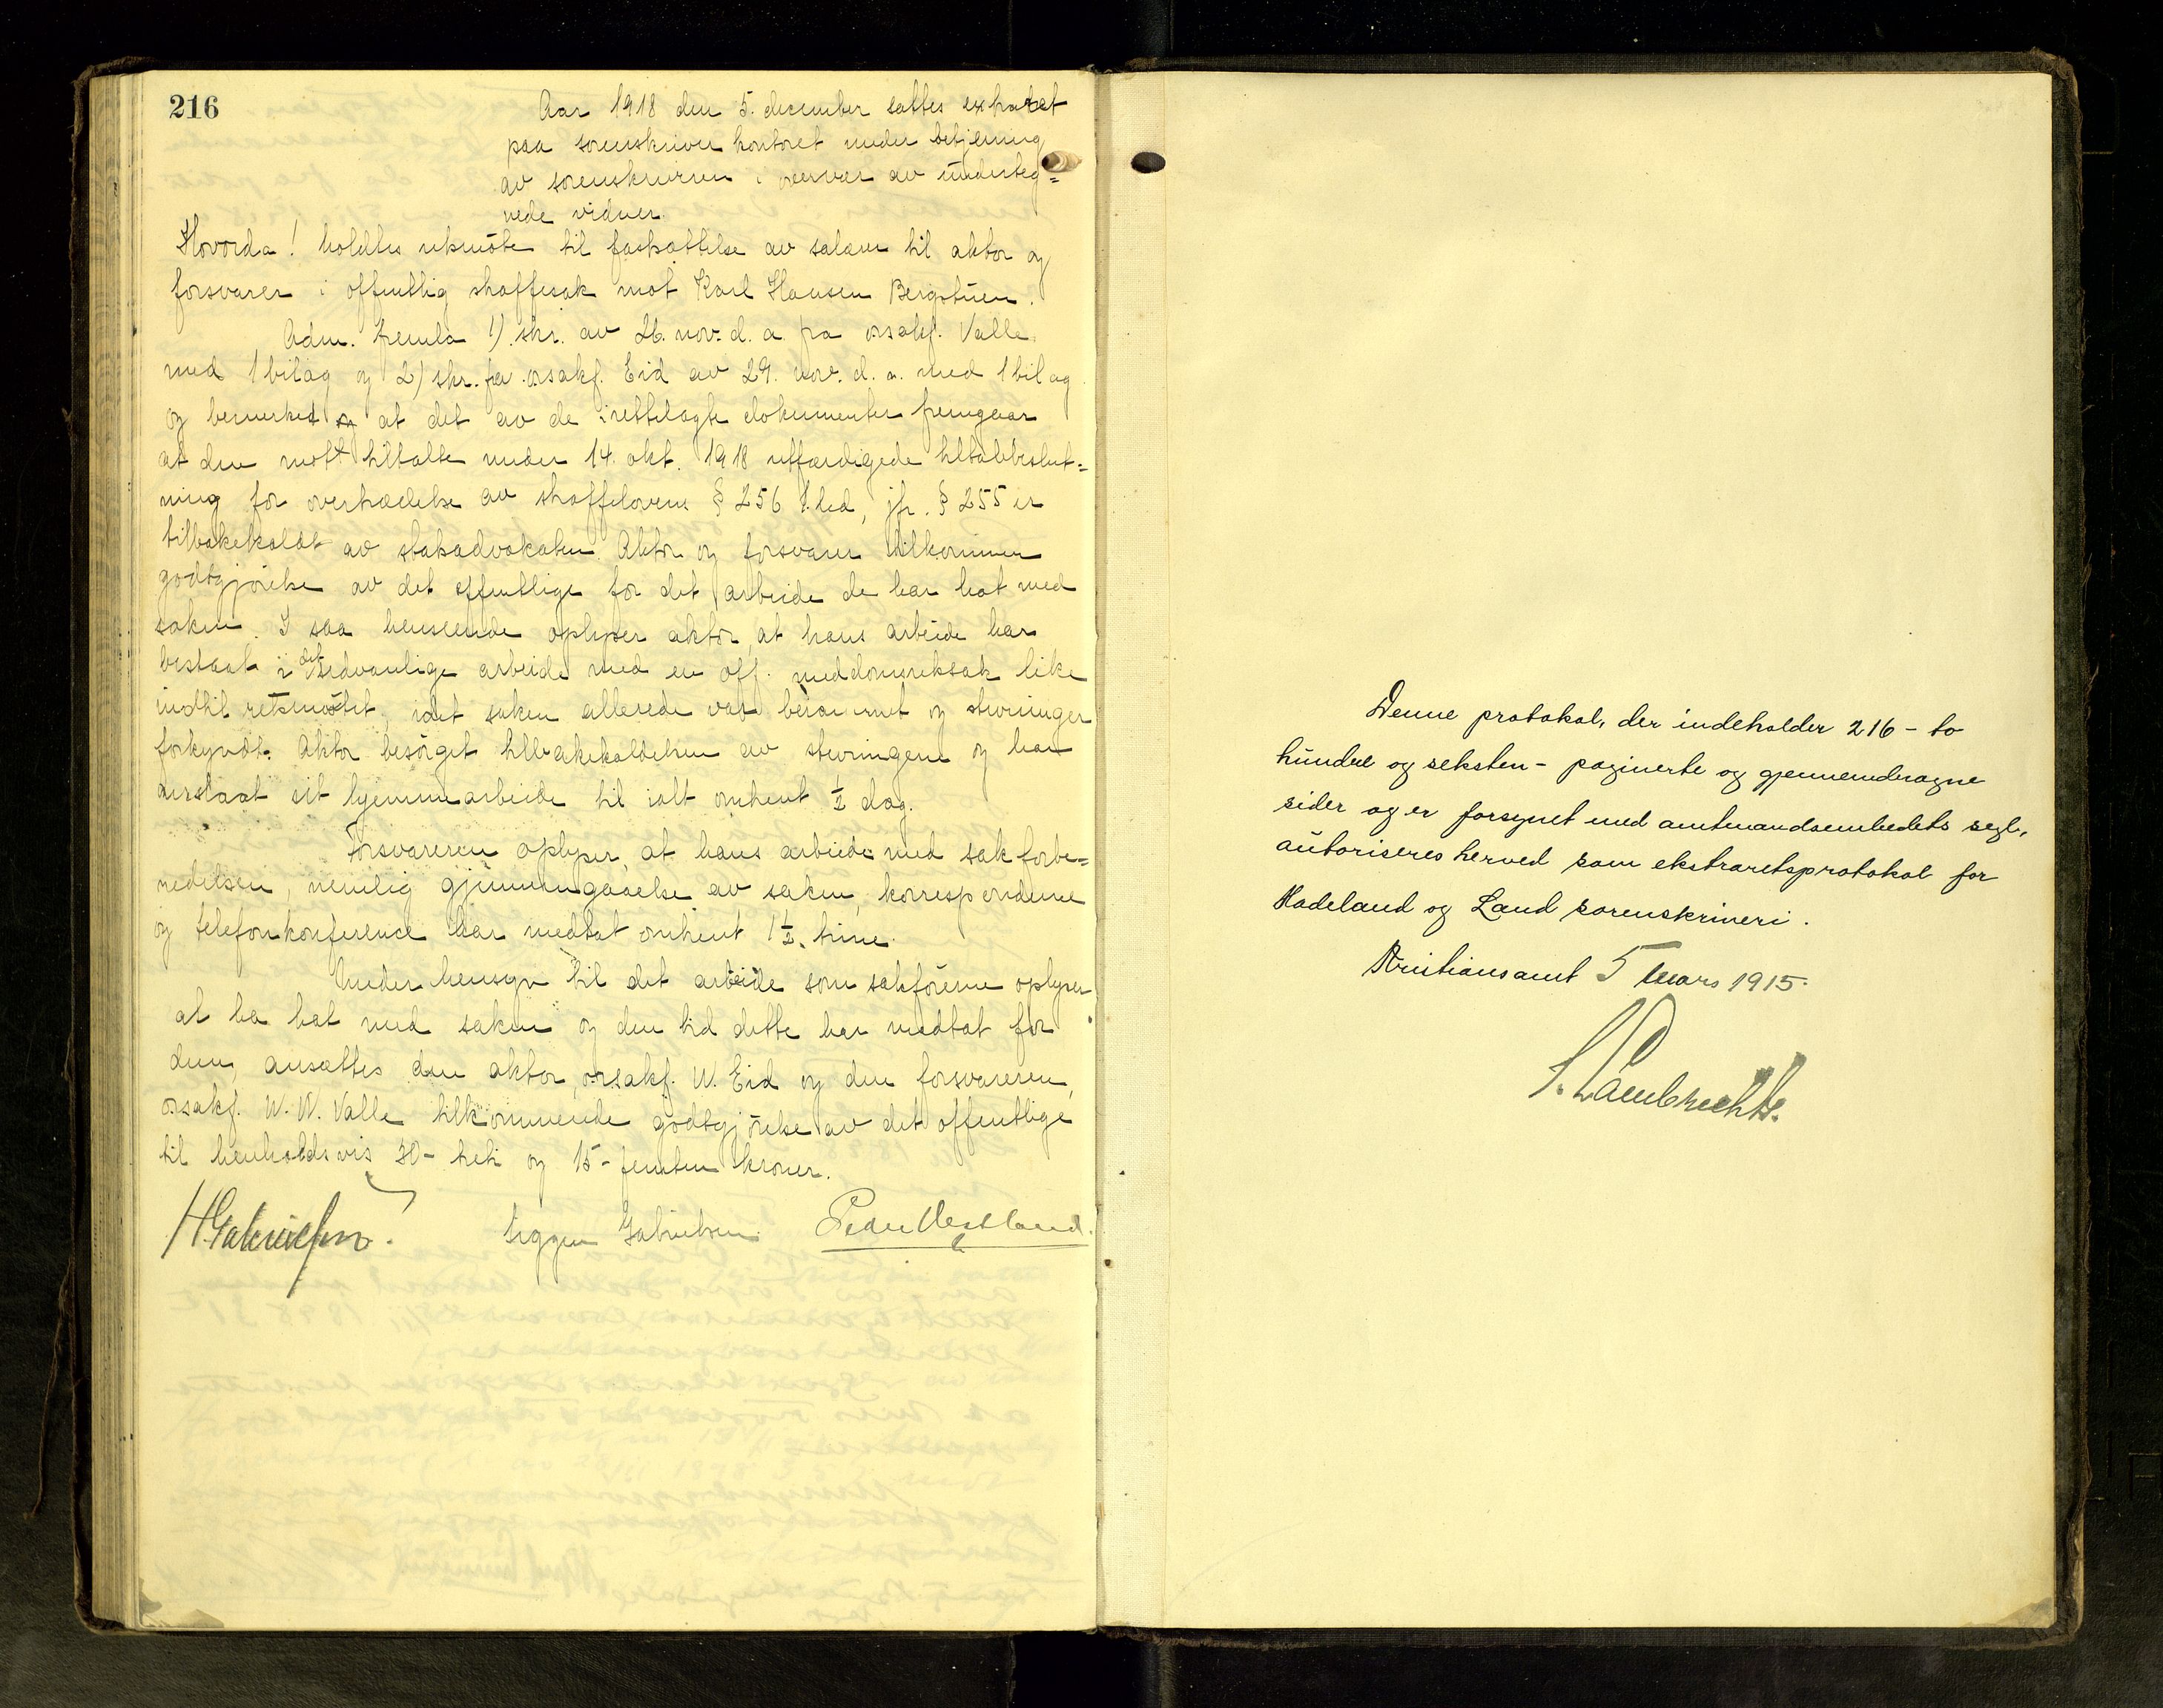 216
Aar 1918 den 5. december sattes extraret
paa sorenskriver kontoret under betjening
av sorenskriveren i overvær av underteg=
nede vidner.
Hvorda! holdtes retsmöte til fastsættelse av salær til aktor og
forsvarer i offentlig straffesak mot Karl Hansen Bergstuen.
Adm. fremla 1) skr. av 26. nov. d. a. fra orsakf. Valle
med 1 bilag og 2) skr. fra orsakf. Eid av 29. nov. d. a. med 1 bilag
og bemerket at det av de irettelagte dokumenter fremgaar
at den mot tiltalte under 14. okt. 1918 utfærdigede tiltalebeslut=
ning for overtrædelse av straffelovens § 256 1. led, jfr. § 255 er
tilbakekaldt av statsadvokaten. Aktor og forsvarer tilkommer
godtgjörelse av det offentlige for det arbeide de har hat med
saken. I saa henseende oplyser aktor, at hans arbeide har
bestaat i det sedvanlige arbeide med en off. meddomsretssak like
indtil retsmötet, idet saken allerede var berammet og stevninger
forkyndt. Aktor besörget tilbakekaldelsen av stevningene og har
anslaat sit hjemmearbeide til ialt omtrent ½ dag.
Forsvareren oplyser, at hans arbeide med sak forbe=
redelsen, nemlig gjennemgaaelse av saken, korrespondence
og telefonkonference har medtat omtrent 1½ time.
Under hensyn til det arbeide som sakförerne oplyser
at ha hat med saken og den tid dette har medtat for
dem, ansættes den aktor, orsakf. W. Eid og den forsvareren,
orsakf. W. W. Valle tilkommende godtgjörelse av det offentlige
til henholdsvis 30- treti og 15- femten kroner.
H Gabrielsen. Gabrielsen. Peder Vestland.
Denne protokol, der indeholder 216 - to
hundre og seksten - paginerte og gjennemdragne
sider og er forsynet med amtmandsembedets segl,
autoriseres herved som ekstraretsprotokol for
Hadeland og Land sorenskriveri.
Kristians amt 5 mars 1915.
S. Lambrechts.